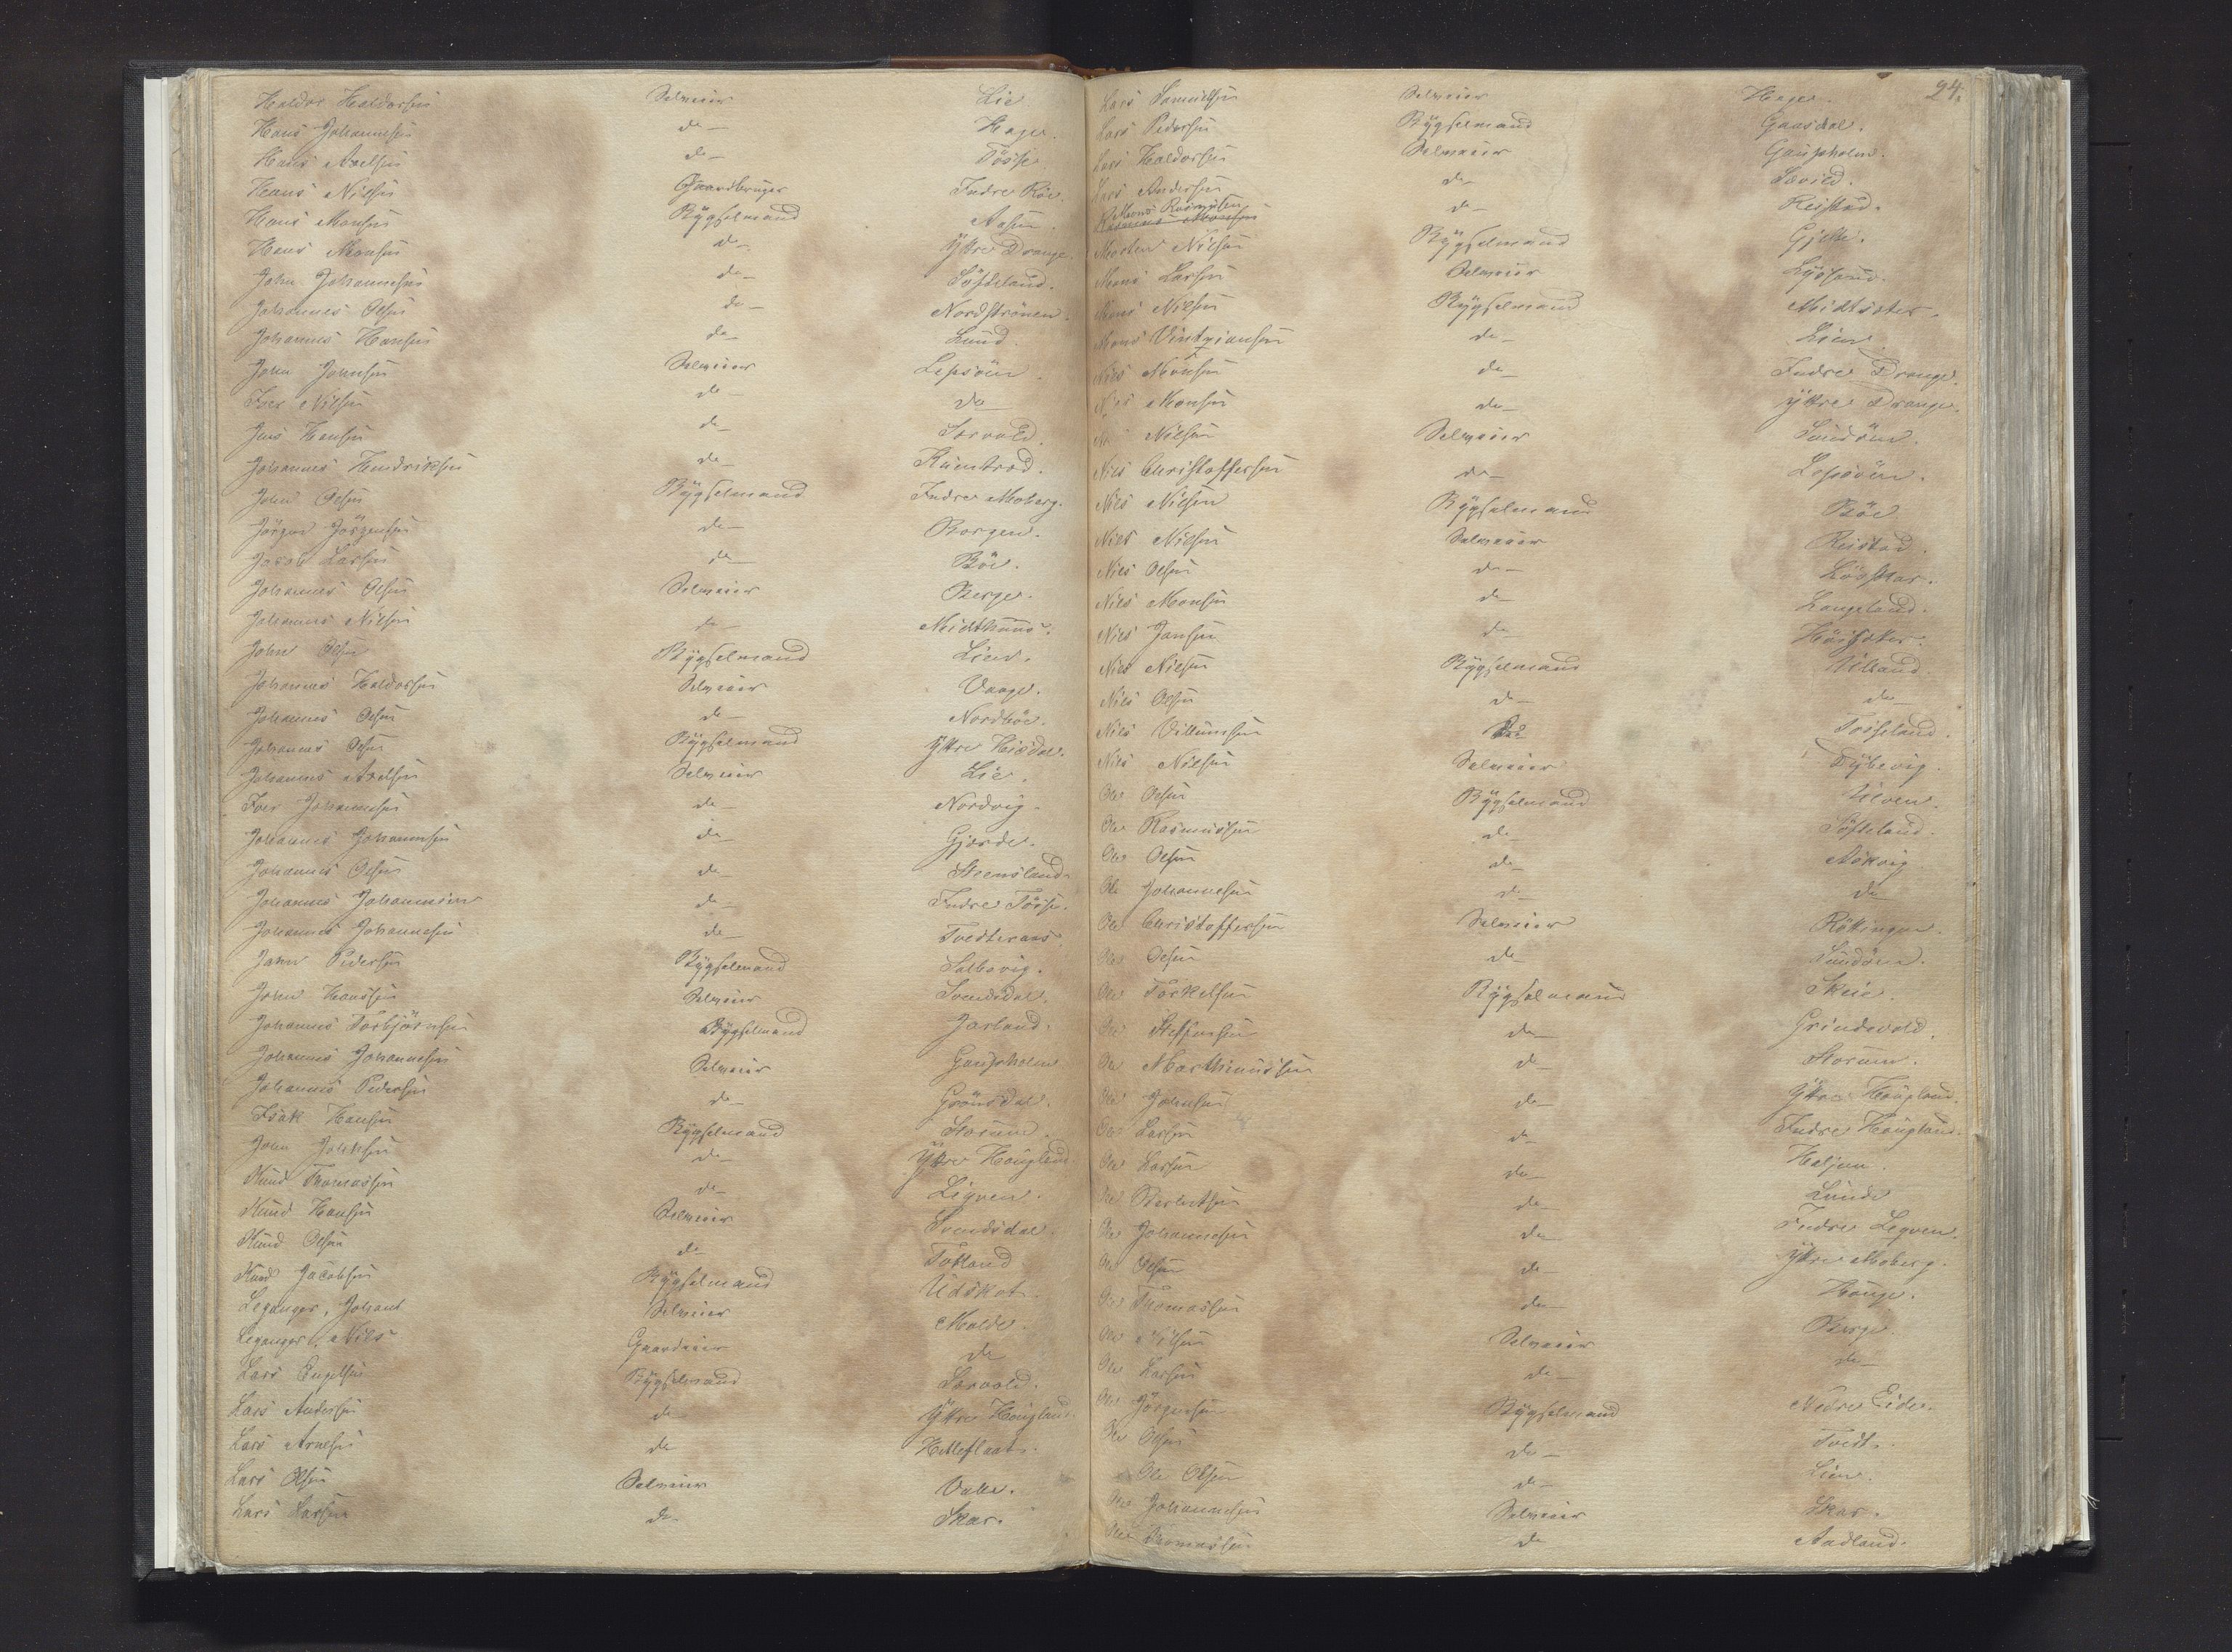 Haldor Haldorsen Selveier Lie
Hans Johannesen do— Hage.
Hans Axelsen do— Tösse
Hans Nilsen Gaardbruger Indre Röe.
Hans Monsen Bÿgselmand Aasen.
Hans Monsen do— Ÿttre Drange.
John Johannesen do— Söfteland.
Johannes Olsen do— Nordströnen.
Johannes Hansen do— Lund.
John Johnsen Selveier Lepsöen.
Iver Nilsen do— do—
Jens Hansen do— Sørvold.
Johannes Hendriksen do—
John Olsen Bÿgselmand Indre Moberg.
Jörgen Jörgensen do— Borgen.
Jacob Larsen do— Böe.
Johannes Olsen Selveier Berge.
Johannes Nilsen do— Midthuus.
John Olsen Bÿgselmand Lien.
Johannes Haldorsen Selveier Vaage.
Johannes Olsen do— Nordböe.
Johannes Olsen Bÿgselmand Ÿttre Hisdal.
Johannes Axelsen Selveier Lie.
Iver Johannesen do— Nordvig.
Johannes Johannesen do— Gjerde.
Johannes Olsen do— Steensland.
Johannes Johannesen do— Indre Tösse.
Johannes Johannesen do—
John Pedersen Bÿgselmand Solbvig.
John Hanssen Selveier Svendsdal.
Johannes Torbjörnsen Bÿgselmand Jarland.
Johannes Johannesen Selveier Gaupholm
Johannes Pedersen do— Grönsdal.
Isak Hansen Bÿgselmand Storum.
John do— Ÿttre Hougland
Knud Thomassen do— Ligven.
Knud Hansen Selveier Svendsdal.
Knud Olsen do— Tofland
Knud Jacobsen Bÿgselmand Udskot.
Leganger, Johan Selveier Molde.
Leganger, Niels Gaardeier do
Lars Engelsen Bÿgselmand Sørvold.
Lars Andersen do— Ÿttre Hougland.
Lars Arnesen do— Hetleflaat.
Lars Olsen Selveier Valle.
Lars Larsen do— Skar.
24.
Lars Samuelsen Selveier Hage.
Lars Pedersen Bÿgselmand Gaasdal.
Lars Haldorsen Selveier Gaupholm.
Lars Andersen do—
Mons Rasmussen
Rasmus Monsen do— Reistad.
Morten Nilsen Bÿgselmand
Mons Larsen Selveier Lysöund.
Mons Nilsen Bÿgselmand Midtsæter.
Mons do— Lien.
Niels Monsen do— Indre Drange.
Monsen do— Ÿttre Drange.
Nilsen Selveier Sundöen.
Niels Christoffersen do— Lepsöen.
Niels Nilsen Bÿgselmand Böe
Niels Nilsen Selveier Reistad.
Niels Olsen do—
Niels Monsen do— Langeland.
Niels Jansen do— Höisæter.
Niels Nilsen Bÿgselmand Ulland.
Niels Olsen do— do—
Niels Villumsen do
Niels Nilsen Selveier Dÿbevig.
Ole Olsen Bÿgselmand Ulven.
Ole Rasmussen do— Söfteland.
Ole Olsen do— Askvig
Ole Johannesen do— do
Ole Christoffersen Selveier Röttingen.
Ole Olsen do— Sundöen.
Ole Torkelsen Bÿgselmand Skeie.
Ole Steffensen do— Grindevold.
Ole Marthinussen do— Storum.
Ole Johnsen do— Ÿttre Hougland.
Ole Larsen do— Indre Hougland.
Ole Larsen do— Haljem.
Ole do— Lunde
Ole Johannesen do— Indre Legven.
Ole Olsen do— Ÿttre Moberg.
Ole Thomassen do— Houge.
Ole Nilsen Selveier Berge
Ole Larsen do— do—
Ole Jörgensen Bÿgselmand Nedre Eide.
Ole Olsen do— Tvedt.
Ole Olsen do— Lien.
Ole Johannesen Selveier Skar.
Ole Thomassen do Aadland.